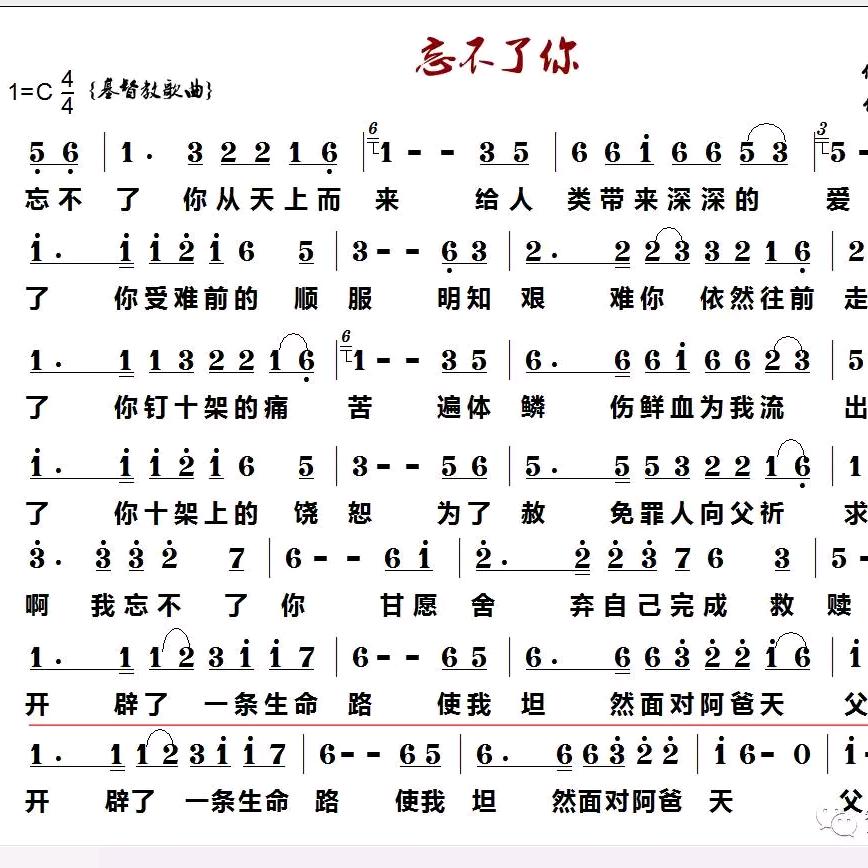 忘不了你
1=C 4/4 {基督教歌曲}
5 6 | 1 · 3 2 2 1 6 | 6 1 - - 3 5 | 6 6 1 6 6 5 3 | 3 5 -
忘不 了 你从天上而 来 给人 类带来深深的 爱
1 · 1 1 2 1 6 5 | 3 - - 6 3 | 2 · 2 2 3 3 2 1 6 | 2
了 你受难前的 顺 服 明知 艰 难你 依然往前 走
1 · 1 1 3 2 2 1 6 | 6 1 - - 3 5 | 6 · 6 6 1 6 6 2 3 | 5
了 你钉十架的痛 苦 遍体 鳞 伤鲜血为我流 出
1 · 1 1 2 1 6 5 | 3 - - 5 6 | 5 · 5 5 3 2 2 1 6 | 1
了 你十架上的 饶 恕 为了 赦 免罪人向父祈 求
3 · 3 3 2 7 | 6 - - 6 1 | 2 · 2 2 3 7 6 3 | 5 -
啊 我忘不 了 你 甘愿 舍 弃自己完成 救 赎
1 · 1 1 2 3 1 1 7 | 6 - - 6 5 | 6 · 6 6 3 2 2 1 6 | 1
开 辟了 一条生命 路 使我 坦 然面对阿爸天 父
1 · 1 1 2 3 1 1 7 | 6 - - 6 5 | 6 · 6 6 3 2 2 | 1 6 - 0 | 1 -
开 辟了 一条生命 路 使我 坦 然面对阿爸 天 父